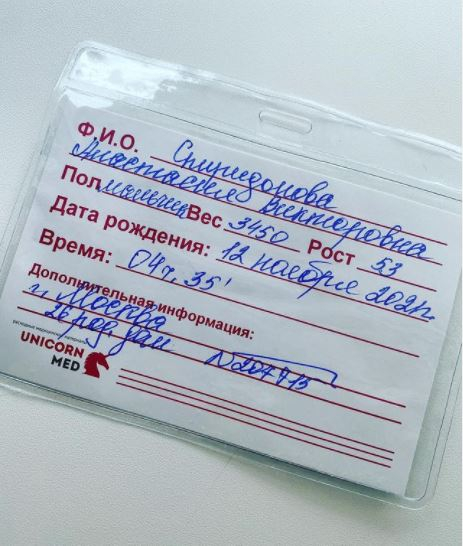 Ф.И.О. Спиридонова
Анастасия Викторовна
Пол мальчик Вес 3450 Рост 53
Дата рождения: 12 ноября 2021г.
Время: 04ч. 35'
Дополнительная информация:
г. Москва
26 род дом
расходные медицинские материалы
UNICORN
MED